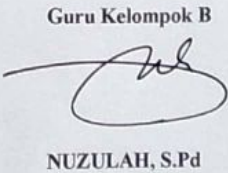 Guru Kelompok B
NUZULAH, S.Pd